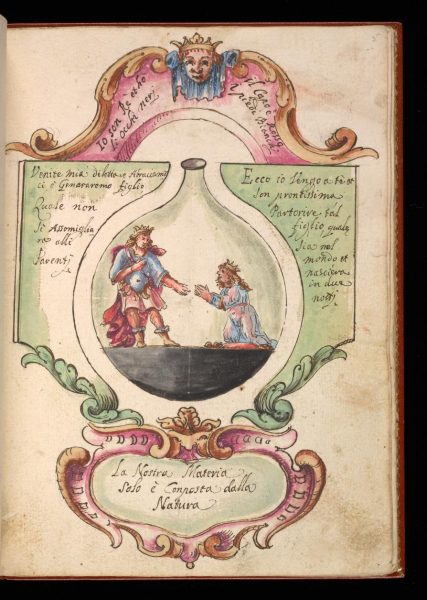 Io son Re et ho
li Occhi neri
il Capo è Rosso
i piedi Bianchi
Venite mia diletta e Abracciamo
ci è Generaremo figlio
Quale non
Si Assomiglia
ra alli
Parenti
Ecco io Vengo a te et
son prontissima
Partorire tal
figlio quale
Sia nel
mondo et
nasciera
in due
La Nostra Materia
Solo è Conposta dalla
Natura